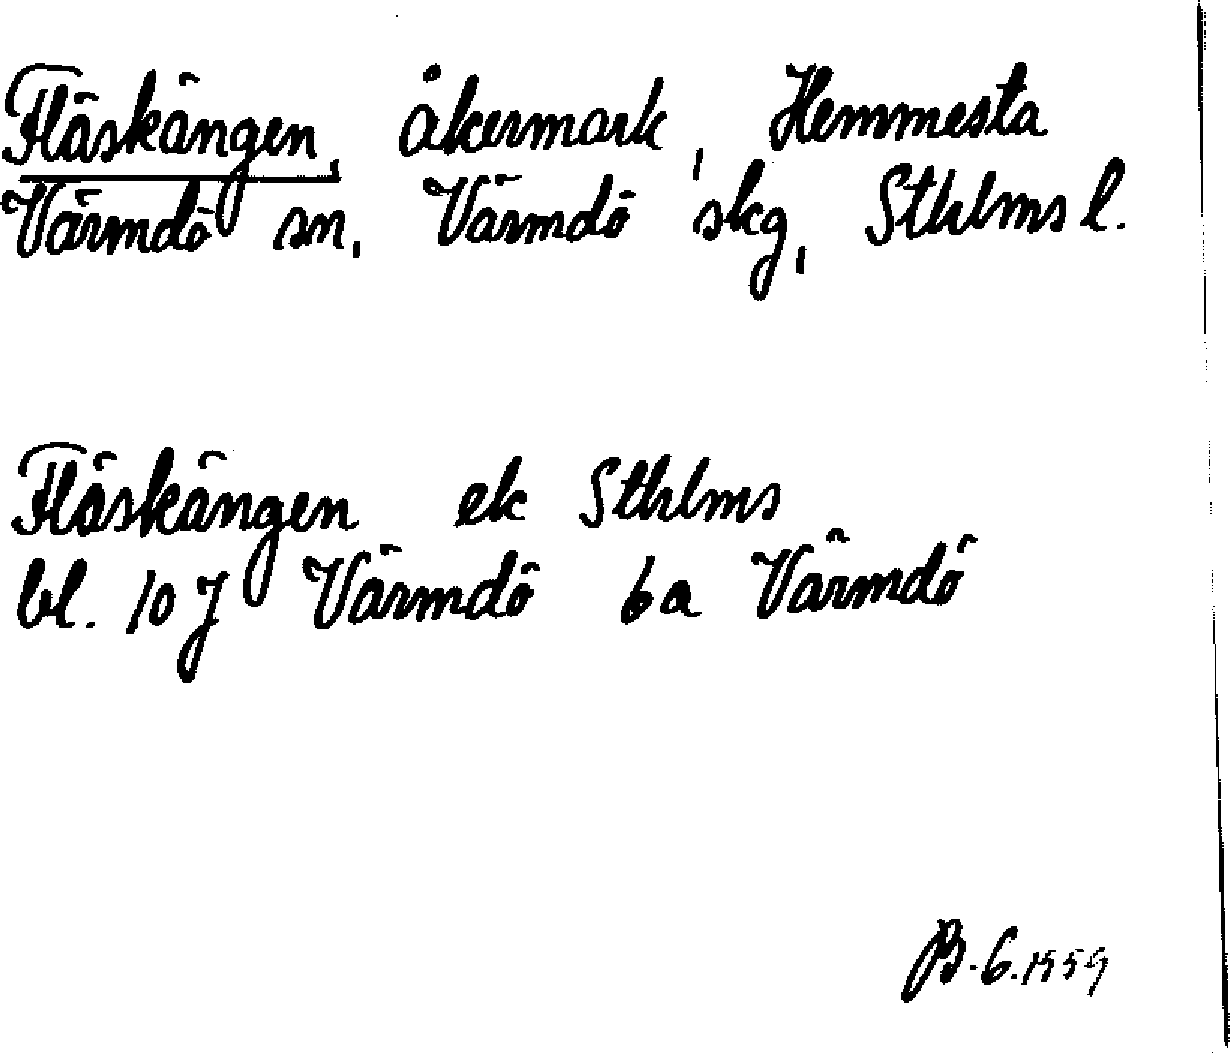 Fläskängen, åkermark, Hemmesta
Värmdö sn, Värmdö skg, Sthlms l.
Fläskängen ek Sthlms
bl. 10 J Värmdö 6a Värmdö
B.G. 1959